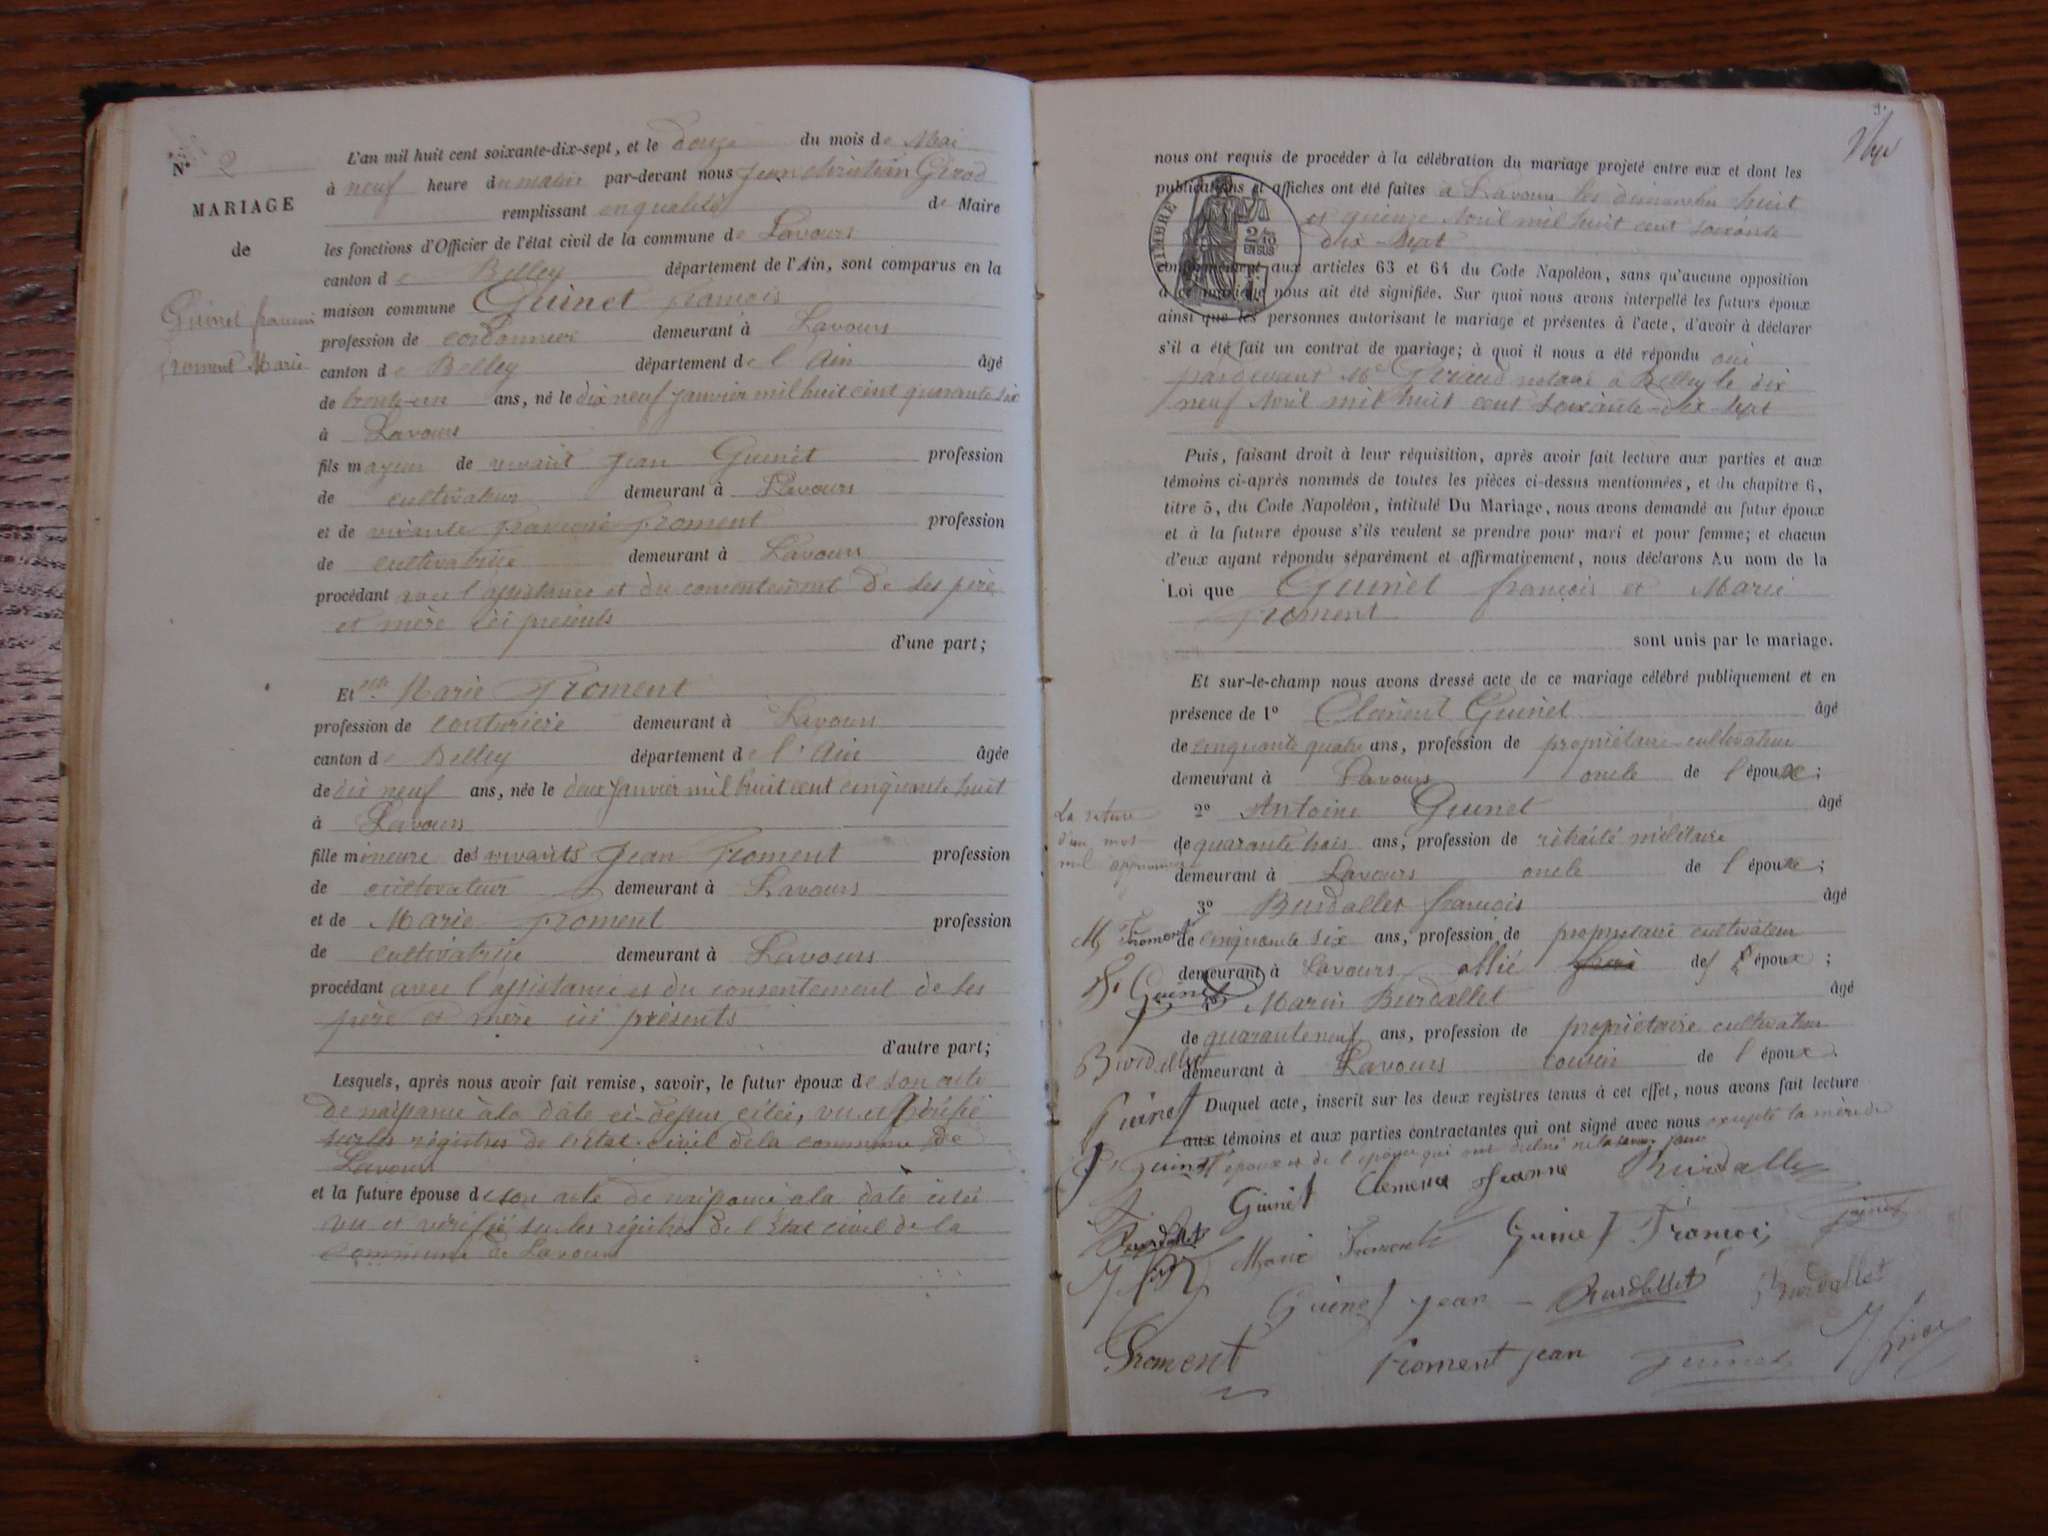 N° 2
MARIAGE
de
Guinet francois
Froment Marie
L'an mil huit cent soixante-dix-sept, et le douze du mois de Mai
à neuf heure du matin par-devant nous Jean christian Girod
remplissant en qualité de Maire
les fonctions d'Officier de l'état civil de la commune de Lavours
canton de Belley département de l'Ain, sont comparus en la
maison commune Guinet francois
profession de cordonnier demeurant à Lavours
canton de Belley département de l'Ain âgé
de trente-un ans, né le dix neuf janvier mil huit cent quarante six
à Lavours
fils mageur de vivant Jean Guinet profession
de cultivateur demeurant à Lavours
et de vivante francoise Froment profession
de cultivatrice demeurant à Lavours
procédant avec l'assistance et du consentement de ses père
et mère ici présents
d'une part;
Et Marie Froment
profession de couturière demeurant à Lavours
canton de Belley département de l'Ain âgée
de dix neuf ans, née le deux janvier mil huit cent cinquante huit
à Lavours
fille mineure des vivants Jean Froment profession
de cultivateur demeurant à Lavours
et de Marie Froment profession
de cultivatrice demeurant à Lavours
procédant avec l'assistance et du consentement de ses
père et mère ici présents
d'autre part;
Lesquels, après nous avoir fait remise, savoir, le futur époux de son acte
de naissance à la date ci-dessus citée, vu et vérifié
sur les régistres de l'Etat-civil de la commune de
Lavours
et la future épouse de son acte de naissance a la date citée
vu et vérifié sur les régistres de l'Etat civil de la
commune de Lavours
9.
nous ont requis de procéder à la célébration du mariage projeté entre eux et dont les
publications et affiches ont été faites à Lavours les dimanches huit
et quinze Avril mil huit cent soixante
dix-sept
TIMBRE
EN SUS
conformément aux articles 63 et 64 du Code Napoléon, sans qu'aucune opposition
à ce mariage nous ait été signifiée. Sur quoi nous avons interpellé les futurs époux
ainsi que les personnes autorisant le mariage et présentes à l'acte, d'avoir à déclarer
s'il a été fait un contrat de mariage; à quoi il nous a été répondu oui
pardevant Me notaire à Belley le dix
neuf Avril mil huit cent soixante-dix-sept
Puis, faisant droit à leur réquisition, après avoir fait lecture aux parties et aux
témoins ci-après nommés de toutes les pièces ci-dessus mentionnées, et du chapitre 6,
titre 5, du Code Napoléon, intitulé Du Mariage, nous avons demandé au futur époux
et à la future épouse s'ils veulent se prendre pour mari et pour femme; et chacun
d'eux ayant répondu séparément et affirmativement, nous déclarons Au nom de la
Loi que Guinet françois et Marie
Froment
sont unis par le mariage.
Et sur-le-champ nous avons dressé acte de ce mariage célébré publiquement et en
présence de 1° Clément Guinet âgé
de cinquante quatre ans, profession de propriétaire-cultivateur
demeurant à Lavours oncle de l'épouse;
2° Antoine Guinet âgé
de quarante trois ans, profession de retraité militaire
demeurant à Lavours oncle de l'époux;
La rature
d'un mot
nul approuvée
3° Burdallet francois âgé
de cinquante six ans, profession de propriétaire cultivateur
demeurant à Lavours allié de l'époux;
4° Marin Burdallet âgé
de quarante neuf ans, profession de propriétaire cultivateur
demeurant à Lavours cousin de l'époux.
Duquel acte, inscrit sur les deux registres tenus à cet effet, nous avons fait lecture
aux témoins et aux parties contractantes qui ont signé avec nous excepté la mère de
l'époux et de l'épouse qui ont déclaré ne le savoir faire
M Froment
F. Guinet
Burdallet
Guinet
Guinet
Burdallet
Froment
Guinet Clemence Jeanne Burdallet
Marie Froment Guinet François Guinet
Guinet Jean Burdallet Burdallet
Froment Jean Guinet